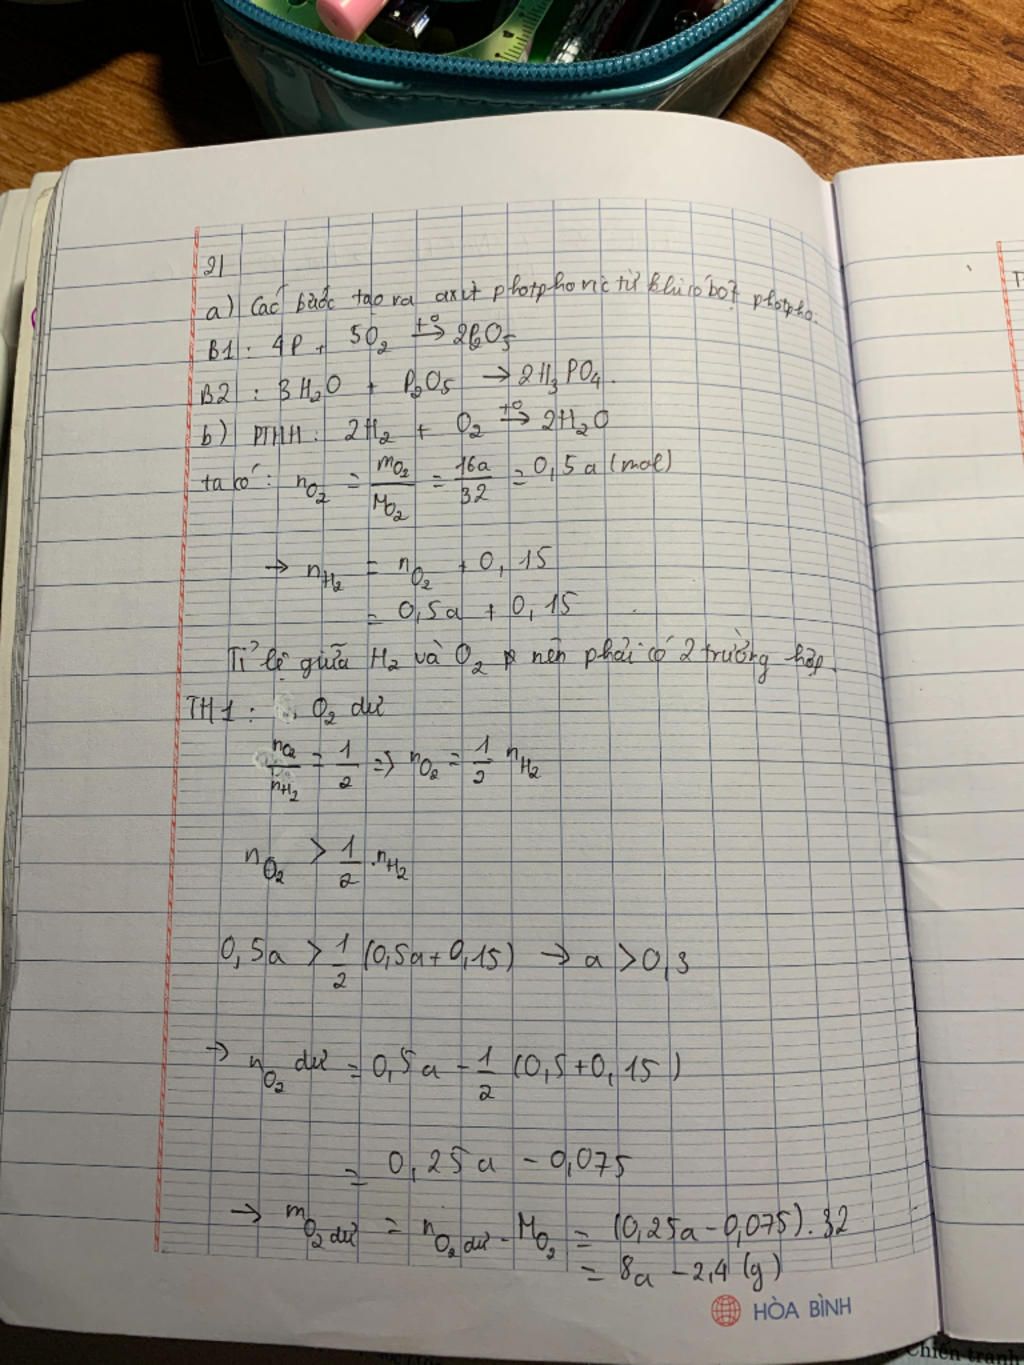 21
a) Các bước tạo ra axit photphoric từ khi có bột photpho.
B1 : 4P + 5O₂ →^{t°} 2P₂O₅
B2 : 3H₂O + P₂O₅ → 2H₃PO₄.
b) PTHH : 2H₂ + O₂ →^{t°} 2H₂O
ta có : n_{O₂} = m_{O₂}/M_{O₂} = 16a/32 = 0,5a (mol)
→ n_{H₂} = n_{O₂} + 0,15
= 0,5a + 0,15
Tỉ lệ giữa H₂ và O₂ nên phải có 2 trường hợp.
TH1 : O₂ dư
n_{O₂}/n_{H₂} = 1/2 => n_{O₂} = 1/2 n_{H₂}
n_{O₂} > 1/2 . n_{H₂}
0,5a > 1/2 (0,5a + 0,15) → a > 0,3
→ n_{O₂} dư = 0,5a - 1/2 (0,5 + 0,15)
= 0,25a - 0,075
→ m_{O₂ dư} = n_{O₂ dư} . M_{O₂} = (0,25a - 0,075) . 32
= 8a - 2,4 (g)
HÒA BÌNH
Chiến tranh